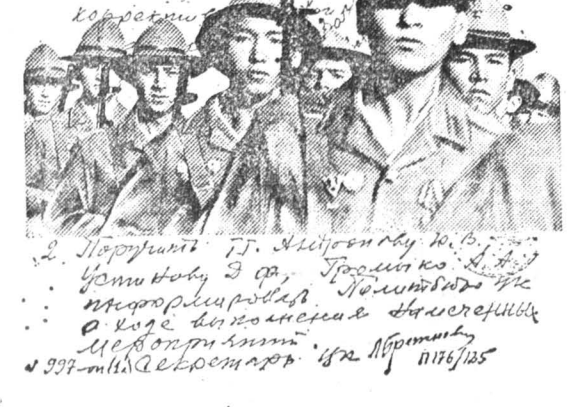 корректив
2. Поручить тт. Андропову Ю.В.,
Устинову Д.Ф., Громыко А.А.
информировать Политбюро ЦК
о ходе выполнения намеченных
мероприятий
№ 997-оп (1л) Секретарь ЦК Л Брежнев
П176/125